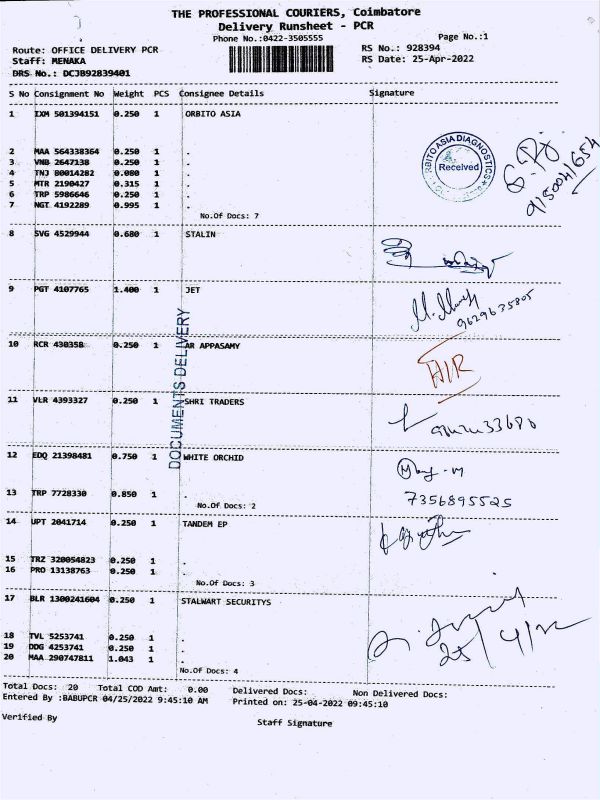 THE PROFESSIONAL COURIERS, Coimbatore
Delivery Runsheet - PCR
Phone No.:0422-3505555
Page No.:1
Route: OFFICE DELIVERY PCR
RS No.: 928394
Staff: MENAKA
RS Date: 25-Apr-2022
DRS No.: DCJB92839401
S No Consignment No Weight PCS Consignee Details Signature
1 IXM 501394151 0.250 1 ORBITO ASIA
2 MAA 564338364 0.250 1 .
3 VNB 2647138 0.250 1 .
4 TNJ 80014282 0.080 1 .
5 MTR 2190427 0.315 1 .
6 TRP 5986646 0.250 1 .
7 NGT 4192289 0.995 1 .
No.Of Docs: 7
ORBITO ASIA DIAGNOSTICS
Received
9150041654
8 SVG 4529944 0.680 1 STALIN
9 PGT 4107765 1.400 1 JET
9629635805
DOCUMENTS DELIVERY
10 RCR 430358 0.250 1 AR APPASAMY
AIR
11 VLR 4393327 0.250 1 SHRI TRADERS
12 EDQ 21398481 0.750 1 WHITE ORCHID
13 TRP 7728330 0.850 1 .
No.Of Docs: 2
7356895525
14 UPT 2041714 0.250 1 TANDEM EP
15 TRZ 320054823 0.250 1 .
16 PRO 13138763 0.250 1 .
No.Of Docs: 3
17 BLR 1300241604 0.250 1 STALWART SECURITYS
18 TVL 5253741 0.250 1 .
19 DDG 4253741 0.250 1 .
20 MAA 290747811 1.043 1 .
No.Of Docs: 4
25/4/22
Total Docs: 20 Total COD Amt: 0.00 Delivered Docs: Non Delivered Docs:
Entered By :BABUPCR 04/25/2022 9:45:10 AM Printed on: 25-04-2022 09:45:10
Verified By
Staff Signature